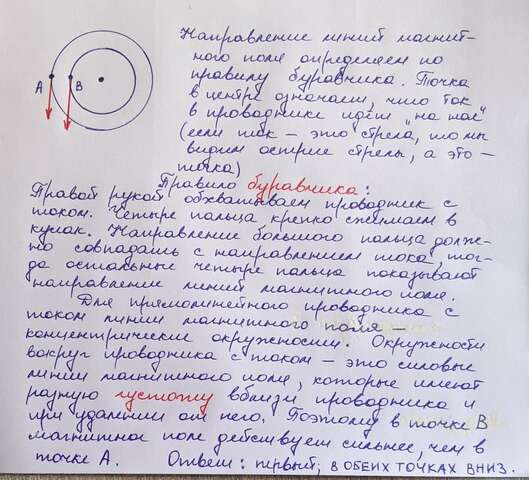 Направление линий магнит-
ного поля определяем по
правилу буравчика. Точка
в центре означает, что ток
в проводнике идёт "на нас"
(если ток - это стрела, то мы
видим острие стрелы, а это -
точка)
А В
Правило буравчика:
Правой рукой обхватываем проводник с
током. Четыре пальца крепко сжимаем в
кулак. Направление большого пальца долж-
но совпадать с направлением тока, тог-
да остальные четыре пальца показывают
направление линий магнитного поля.
Для прямолинейного проводника с
током линии магнитного поля -
концентрические окружности. Окружности
вокруг проводника с током - это силовые
линии магнитного поля, которые имеют
разную густоту вблизи проводника и
при удалении от него. Поэтому в точке В
магнитное поле действует сильнее, чем в
точке А. Ответ: первый; В ОБЕИХ ТОЧКАХ ВНИЗ.